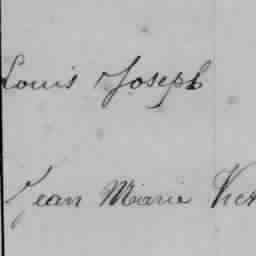 Louis Joseph
Jean Marie